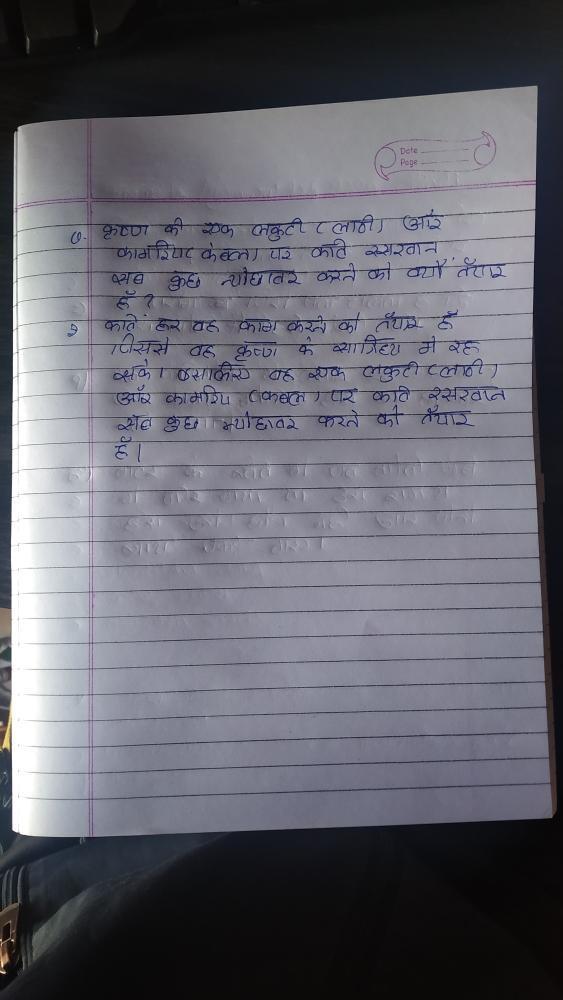 Date
Page
कृष्ण की एक लकुटी (लाठी) और
कामरिया (कंबल) पर कवि रसखान
सब कुछ न्योछावर करने को क्यों तैयार
हैं ?
कवि हर वह काम करने को तैयार हैं
जिससे वह कृष्ण के सान्निध्य में रह
सके। इसलिए वह एक लकुटी (लाठी)
और कामरिया (कंबल) पर कवि रसखान
सब कुछ न्योछावर करने को तैयार
हैं।